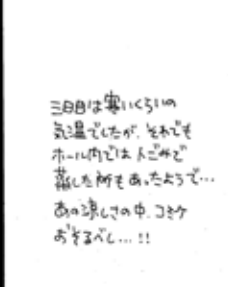 三日目は寒いくらいの
気温でしたが、それでも
ホール内では人ごみで
蒸した所もあったようで…
あの涼しさの中、コミケ
おそるべし…!!